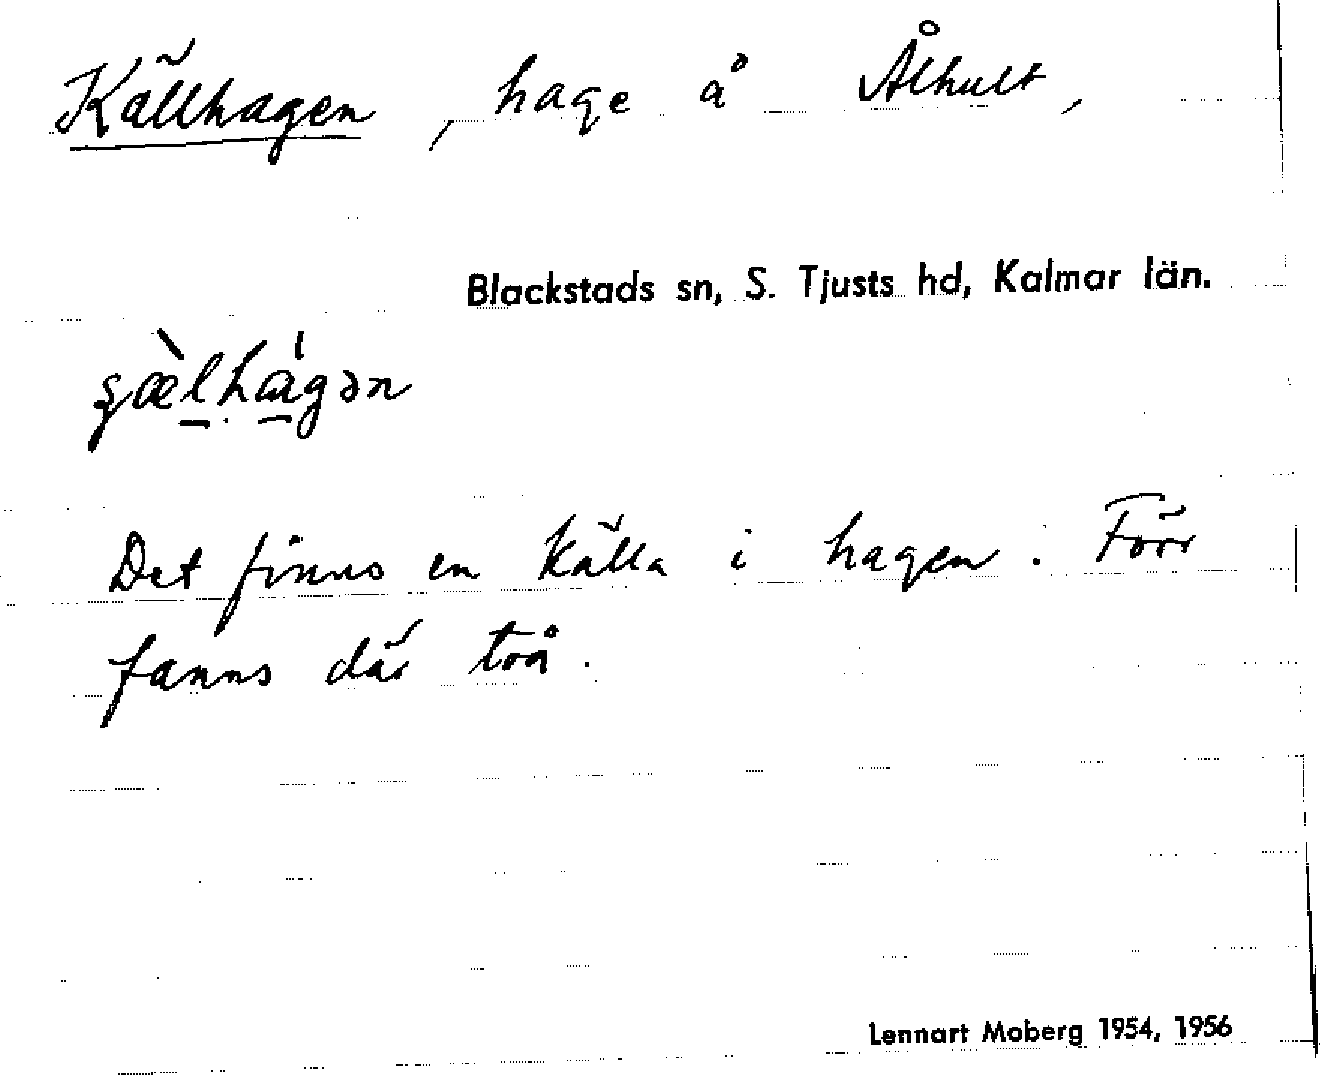 Källhagen, hage å Ålhult,
Blackstads sn, S. Tjusts hd, Kalmar län.
Det finns en källa i hagen. Förr
fanns där två.
Lennart Moberg 1954, 1956